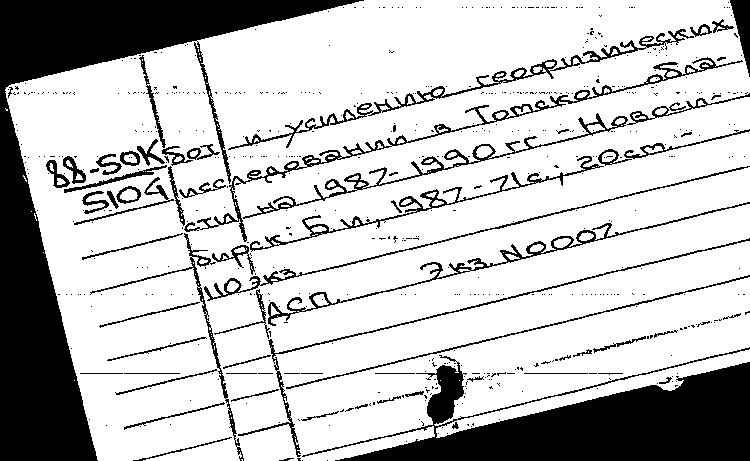 88-50К
5104
бот и усилению геофизических
исследований в Томской обла-
сти на 1987-1990 гг. - Новоси-
бирск: Б.и., 1987. - 71с.; 20см. -
110 экз.
ДСП. Экз. N0007.